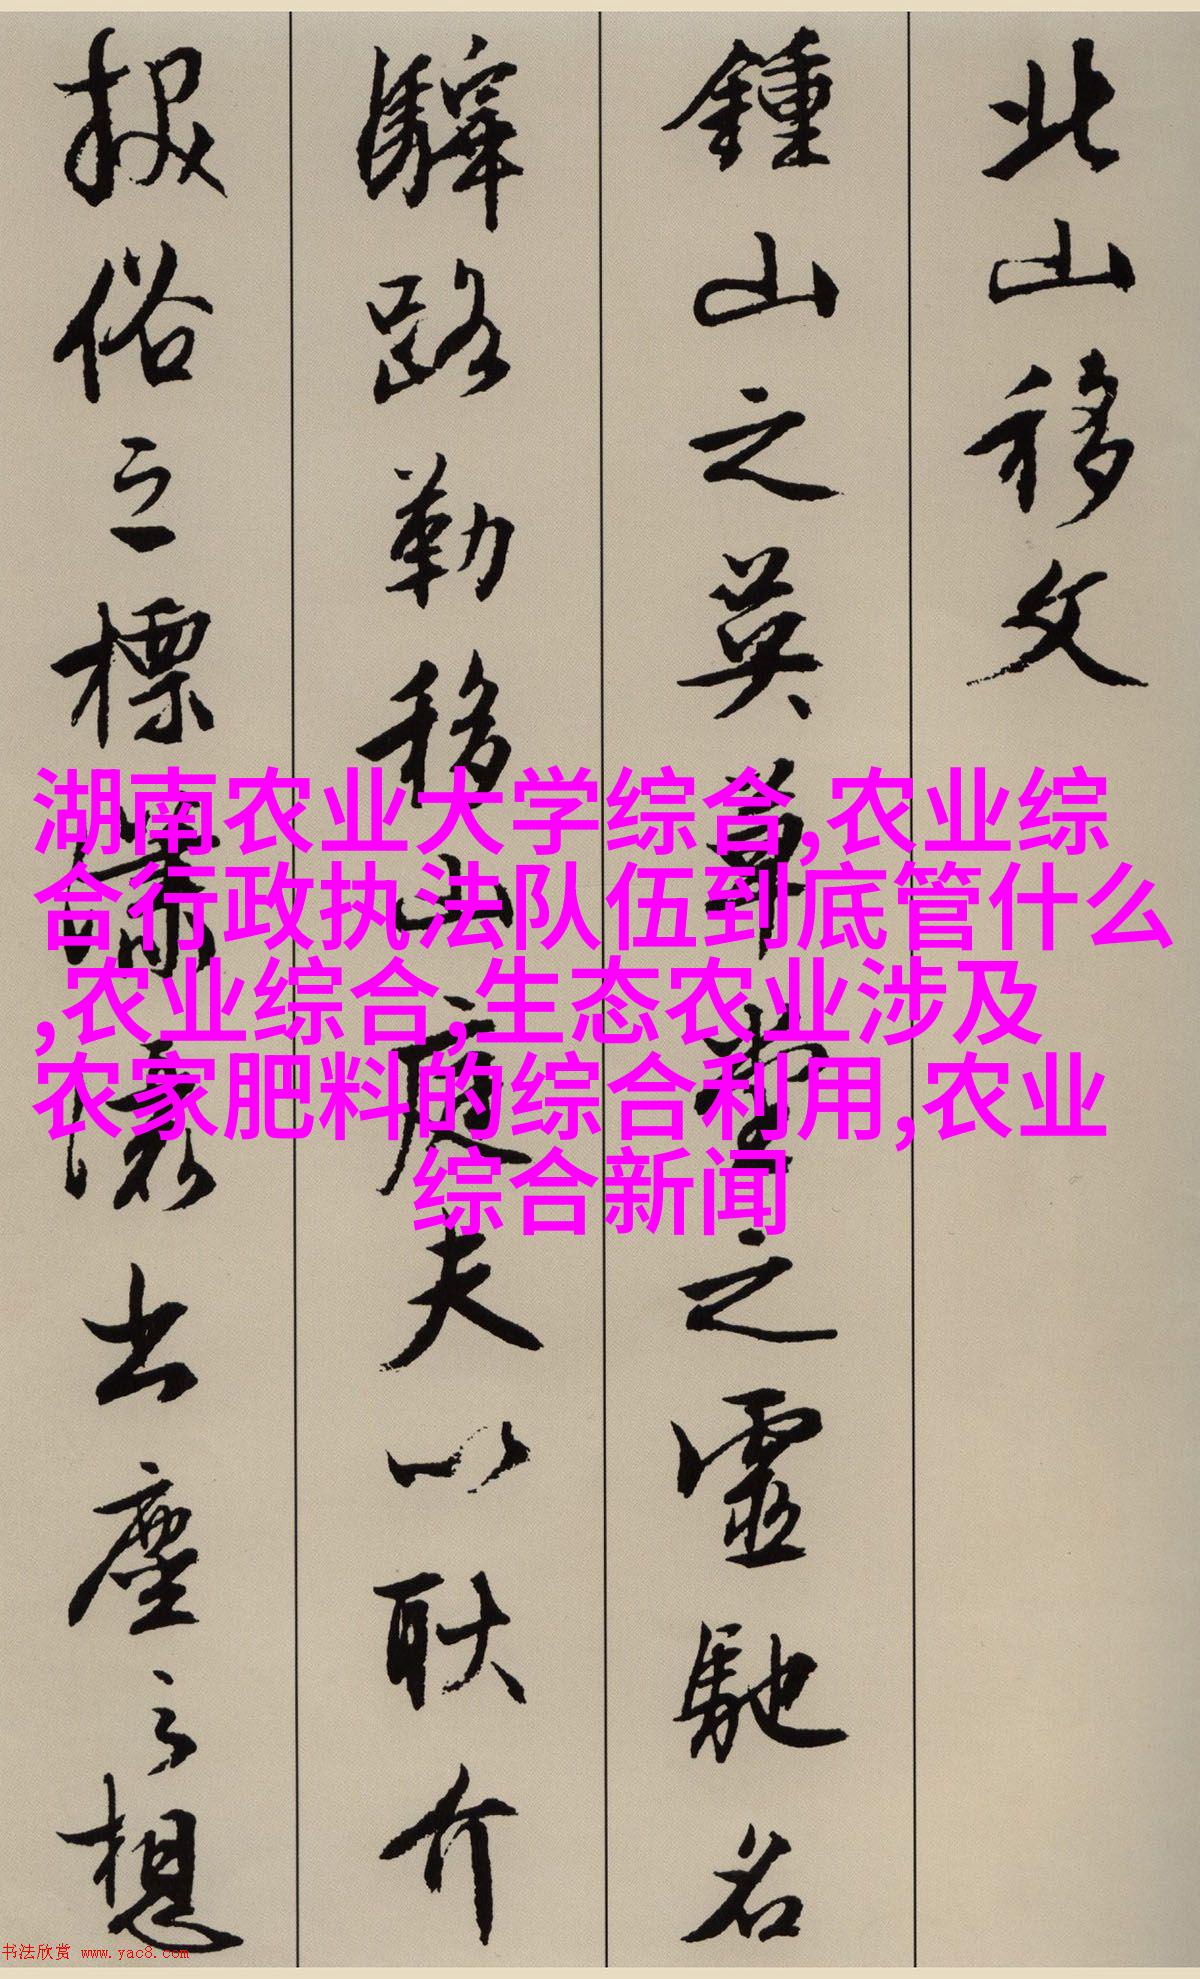 北山移文
鍾山之英草堂之靈馳名
驛路勒移山庭夫以耿介
拔俗之標瀟灑出塵之想
湖南农业大学综合,农业综
合行政执法队伍到底管什么
,农业综合,生态农业涉及
农家肥料的综合利用,农业
综合新闻
书法欣赏 www.yac8.com